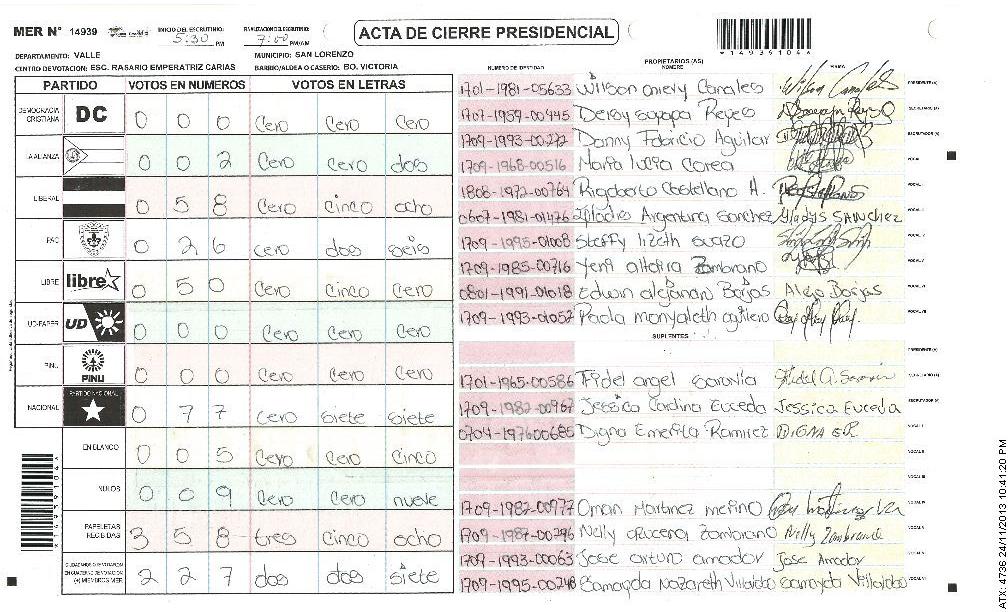 MER N° 14939
INICIO DEL ESCRUTINIO: 5:30 PM
FINALIZACION DEL ESCRUTINIO: 7:00 PM/AM
ACTA DE CIERRE PRESIDENCIAL
*14939104*
DEPARTAMENTO: VALLE
MUNICIPIO: SAN LORENZO
CENTRO DE VOTACION: ESC. RASARIO EMPERATRIZ CARIAS
BARRIO/ALDEA O CASERIO: BO. VICTORIA
PARTIDO VOTOS EN NUMEROS VOTOS EN LETRAS
DEMOCRACIA CRISTIANA DC 0 0 0 Cero Cero Cero
LA ALIANZA 0 0 2 Cero Cero dos
LIBERAL 0 5 8 Cero Cinco ocho
PAC 0 2 6 cero dos seis
LIBRE libre 0 5 0 Cero Cinco Cero
UD-FAPER UD 0 0 0 Cero Cero Cero
PINU PINU 0 0 0 Cero Cero Cero
NACIONAL PARTIDO NACIONAL 0 7 7 cero siete siete
EN BLANCO 0 0 5 Cero Cero cinco
NULOS 0 0 9 Cero Cero nueve
PAPELETAS RECIBIDAS 3 5 8 tres cinco ocho
CIUDADANOS QUE VOTARON EN CUADERNO DE VOTACION (+) MIEMBROS MER 2 2 7 dos dos siete
NUMERO DE IDENTIDAD PROPIETARIOS (AS) NOMBRE FIRMA
1701-1981-05633 Wilson Canales PRESIDENTE (A)
1707-1959-00445 Deisy Reyes SECRETARIO (A)
1709-1993-00272 Danny Fabricio Aguilar ESCRUTADOR (A)
1709-1968-00516 Maria lucila Corea VOCAL I
1808-1972-00764 Rigoberto Castellano A. VOCAL II
0607-1981-01476 Argentina Sanchez Gladys SANCHEZ VOCAL III
1709-1995-01008 Steffy lizeth suazo VOCAL IV
1709-1985-00716 Yeni altagira Zambrano VOCAL V
0801-1991-01018 Edwin alejandro Borjas Alejo Borjas VOCAL VI
1709-1993-01052 Paola monyaleth aguilera VOCAL VII
SUPLENTES
PRESIDENTE (A)
1701-1965-00586 Fidel angel Saravia Fidel A. Saravia SECRETARIO (A)
1709-1982-00967 Jessica Carolina Euceda Jessica Euceda ESCRUTADOR (A)
0704-1976-00685 Digna Emerita Ramirez DIGNA E.R. VOCAL I
VOCAL II
VOCAL III
1709-1982-00977 Oman Martinez merino VOCAL IV
1709-1987-00296 Nelly azucena Zambrano Nelly Zambrano VOCAL V
1709-1993-00063 Jose arturo amador Jose Amador VOCAL VI
1709-1995-00248 Samayda Nazareth Villalobo VOCAL VII
ATX: 4736 24/11/2013 10:41:20 PM